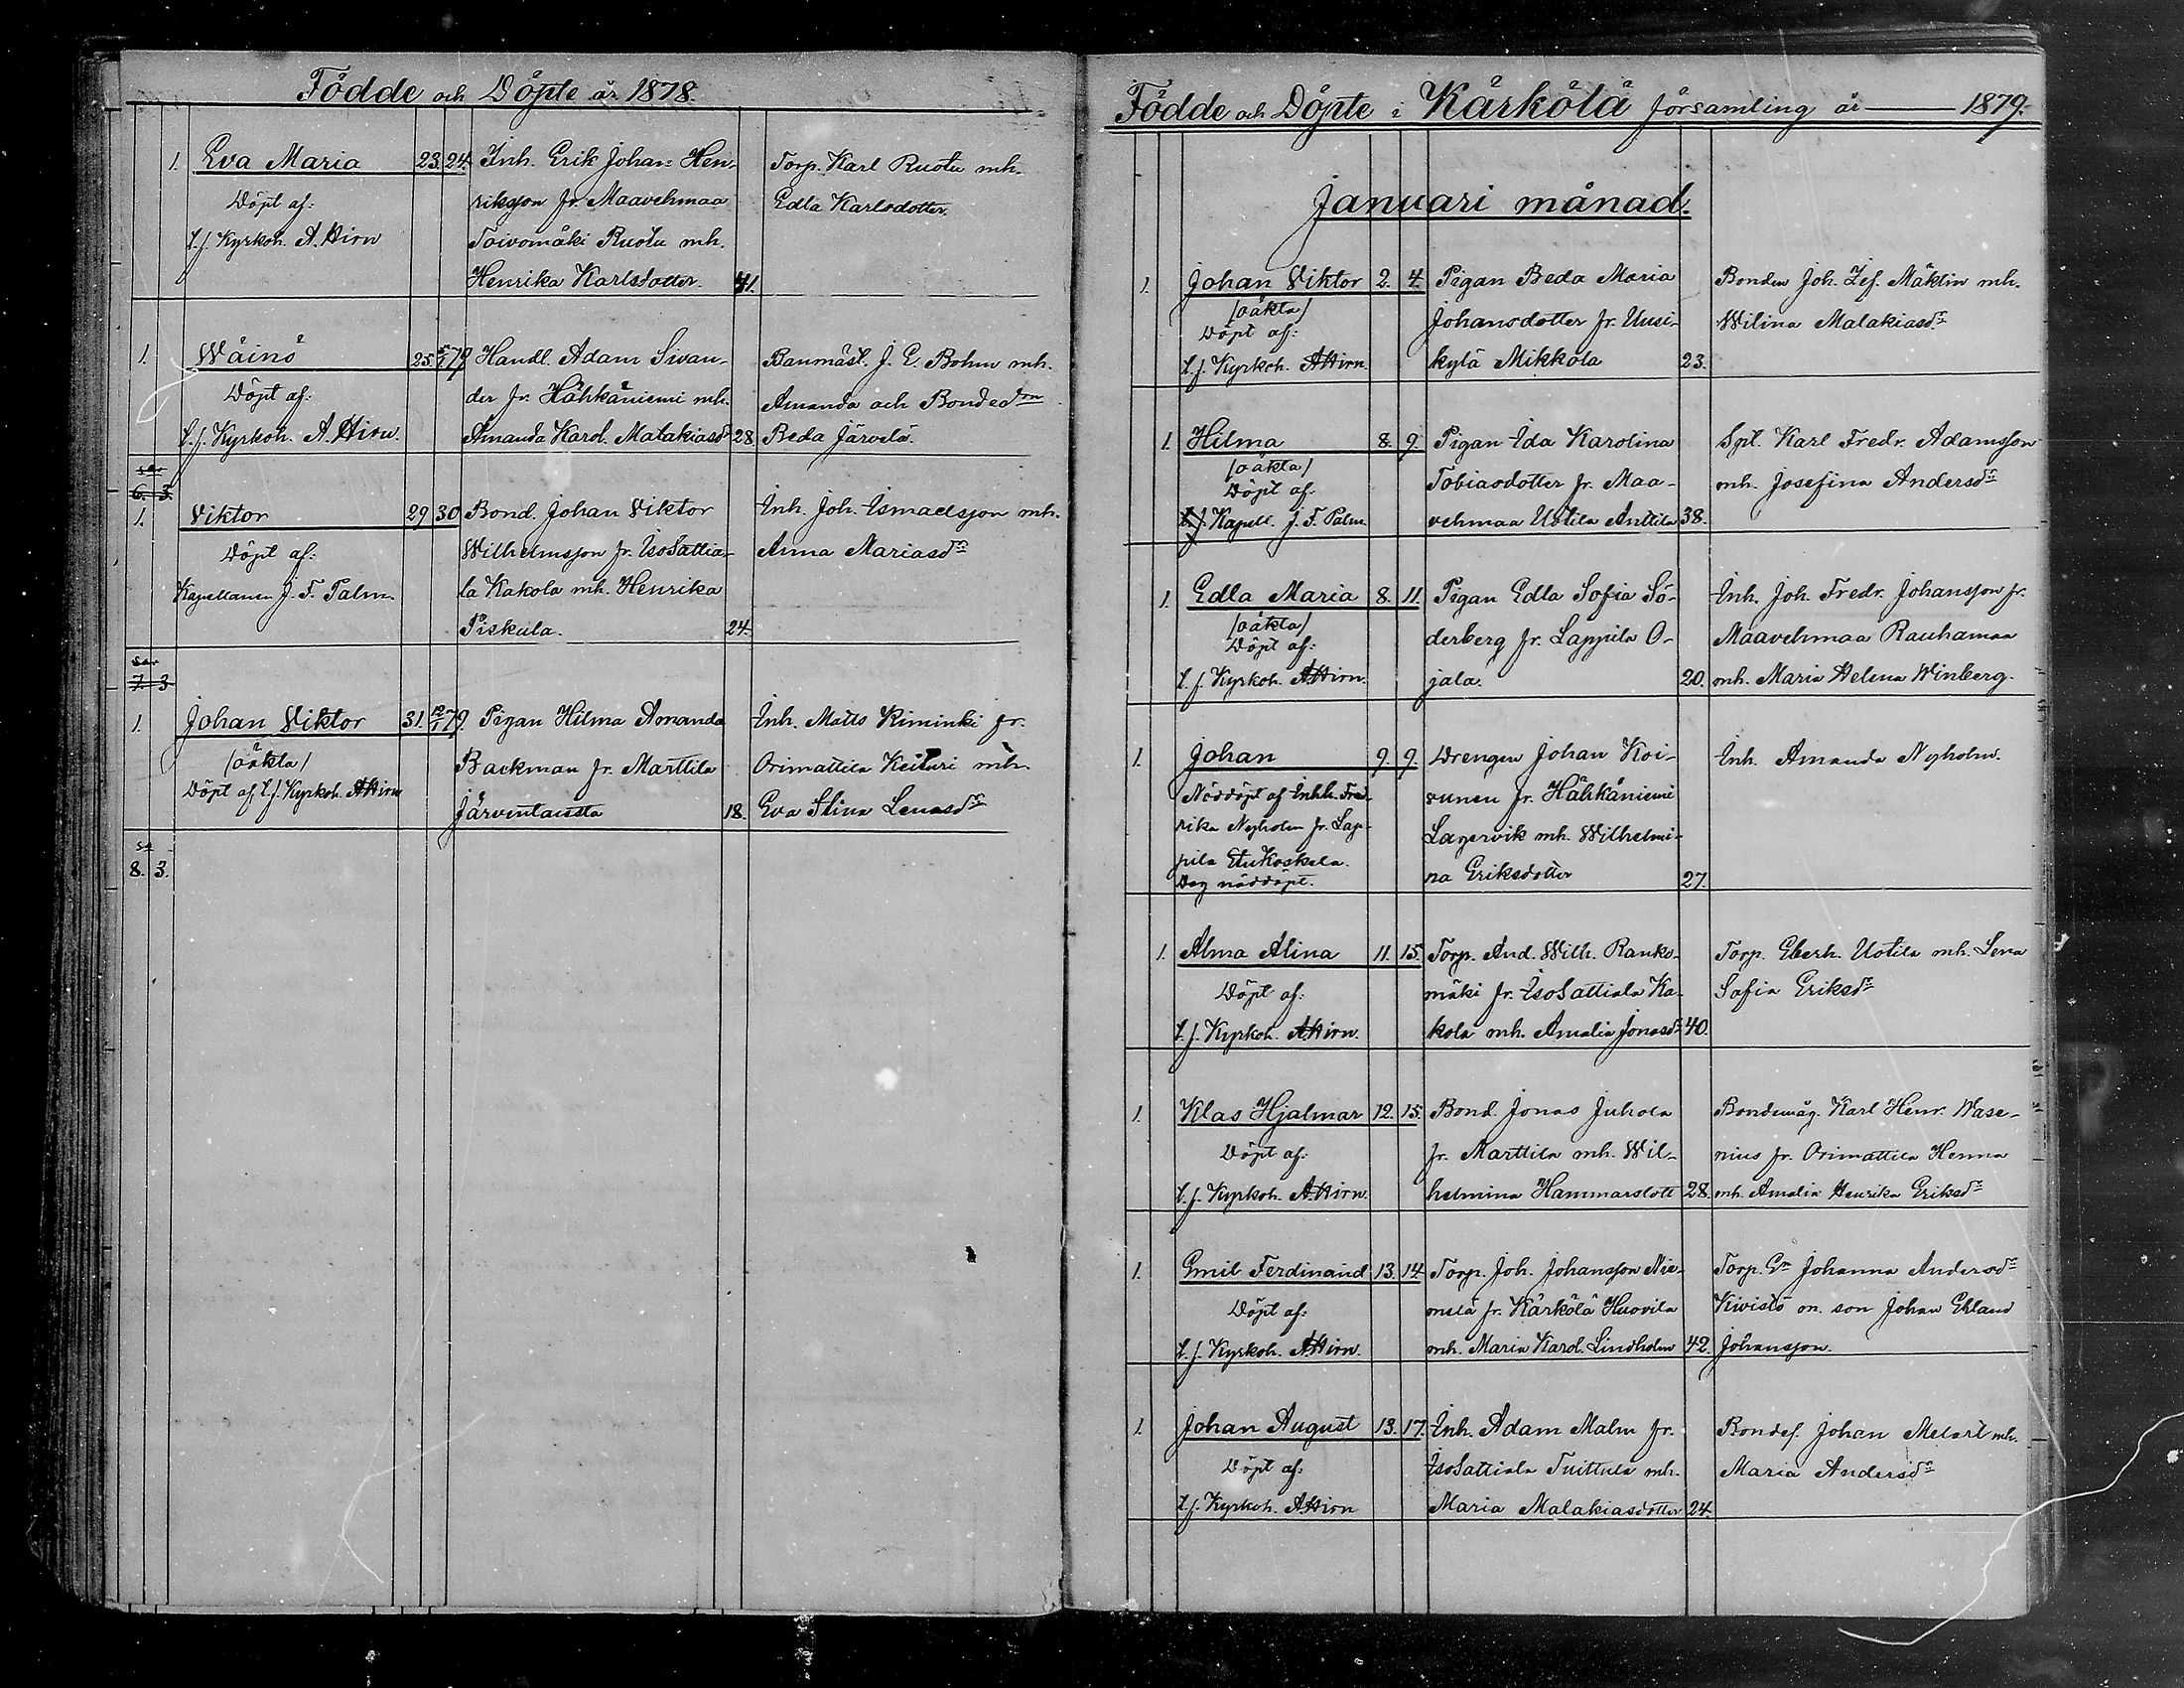 Födde och Döpte år 1878.
1. Eva Maria 23. 24. Inh. Erik Johan Hen- Torp. Karl Ruotu mh.
Döpt af: riksson fr. Maavehmaa Edla Karlsdotter.
t.f. Kyrkoh. A. Hirn Toivomäki Ruotu mh.
Henrika Karlsdotter. 41.
1. Wäinö 25. 5/1 79 Handl. Adam Sivan- Banmäst. J. E. Bohm mh.
Döpt af: der fr. Hähkäniemi mh. Amanda och Bondedn
t.f. Kyrkoh. A. Hirn. Amanda Karol. Malakiasdr 28. Beda Järvelä.
6. 3.
1. Viktor 29 30 Bond. Johan Viktor Inh. Joh. Ismaelsson mh.
Döpt af: Wilhelmsson fr. IsoSattia- Anna Mariasdr
Kapellanen J. F. Palm. la Kakola mh. Henrika
Piskula. 24.
7. 3
1. Johan Viktor 31. 12/1 79. Pigan Hilma Amanda Inh. Matts Kiminki fr.
/oäkta/ Backman fr. Marttila Orimattila Keituri mh.
Döpt af t.f. Kyrkoh. A Hirn Järventausta 18. Eva Stina Lenasdr
Sa
8. 3.
Födde och Döpte i Kärkölä församling år 1879.
Januari månad.
1. Johan Viktor 2. 4. Pigan Beda Maria Bonden Joh. Zef. Mäklin mh.
/oäkta/
Döpt af: Johansdotter fr. Uusi- Wilina Malakiasdr
t.f. Kyrkoh. A Hirn. kylä Mikkola 23.
1. Hilma 8. 9. Pigan Ida Karolina Spt. Karl Fredr. Adamsson
/oäkta/
Döpt af: Tobiasdotter fr. Maa- mh. Josefina Andersdr
Kapell. J. F. Palm vehmaa Ustila Anttila 38.
1. Edla Maria 8. 11. Pigan Edla Sofia Sö- Inh. Joh. Fredr. Johansson fr.
/oäkta/
Döpt af: derberg fr. Lappila O- Maavehmaa Rauhamaa
t.f. Kyrkoh. A Hirn. jala. 20. mh. Maria Helena Winberg.
1. Johan 9. 9. Drengen Johan Koi- Inh. Amanda Nyholm.
Nöddöpt af Inhh. Fred- vunen fr. Hähkäniemi
rika Nyholm fr. Lap- Lagervik mh. Wilhelmi-
pila EtuKoskela.
Dog nöddöpt. na Eriksdotter 27.
1. Alma Alina 11. 15. Torp. And. Wilh. Ranko- Torp. Eberh. Uotila mh. Lena
Döpt af: mäki fr. IsoSattiala Ka- Sofia Eriksdr
t.f. Kyrkoh. A Hirn. kola mh. Amalia Jonasdr 40.
1. Klas Hjalmar 12. 15. Bond. Jonas Juhola Bondemåg. Karl Henr. Wase-
Döpt af: fr. Marttila mh. Wil- nius fr. Orimattila Henna
t.f. Kyrkoh. A Hirn. helmina Hammarslott 28. mh. Amalia Henrika Eriksdr
1. Emil Ferdinand 13. 14 Torp. Joh. Johansson Nie- Torp. En Johanna Andersdr
Döpt af: melä fr. Kärkölä Huovila Kivistö o. son Johan Ekland
t.f. Kyrkoh. A Hirn. mh. Maria Karol. Lindholm 42. Johansson.
1. Johan August 13. 17. Inh. Adam Malm fr. Bondes. Johan Melart mh.
Döpt af: IsoSattiala Tuittula mh. Maria Andersdr
t.f. Kyrkoh. A Hirn Maria Malakiasdotter 24.